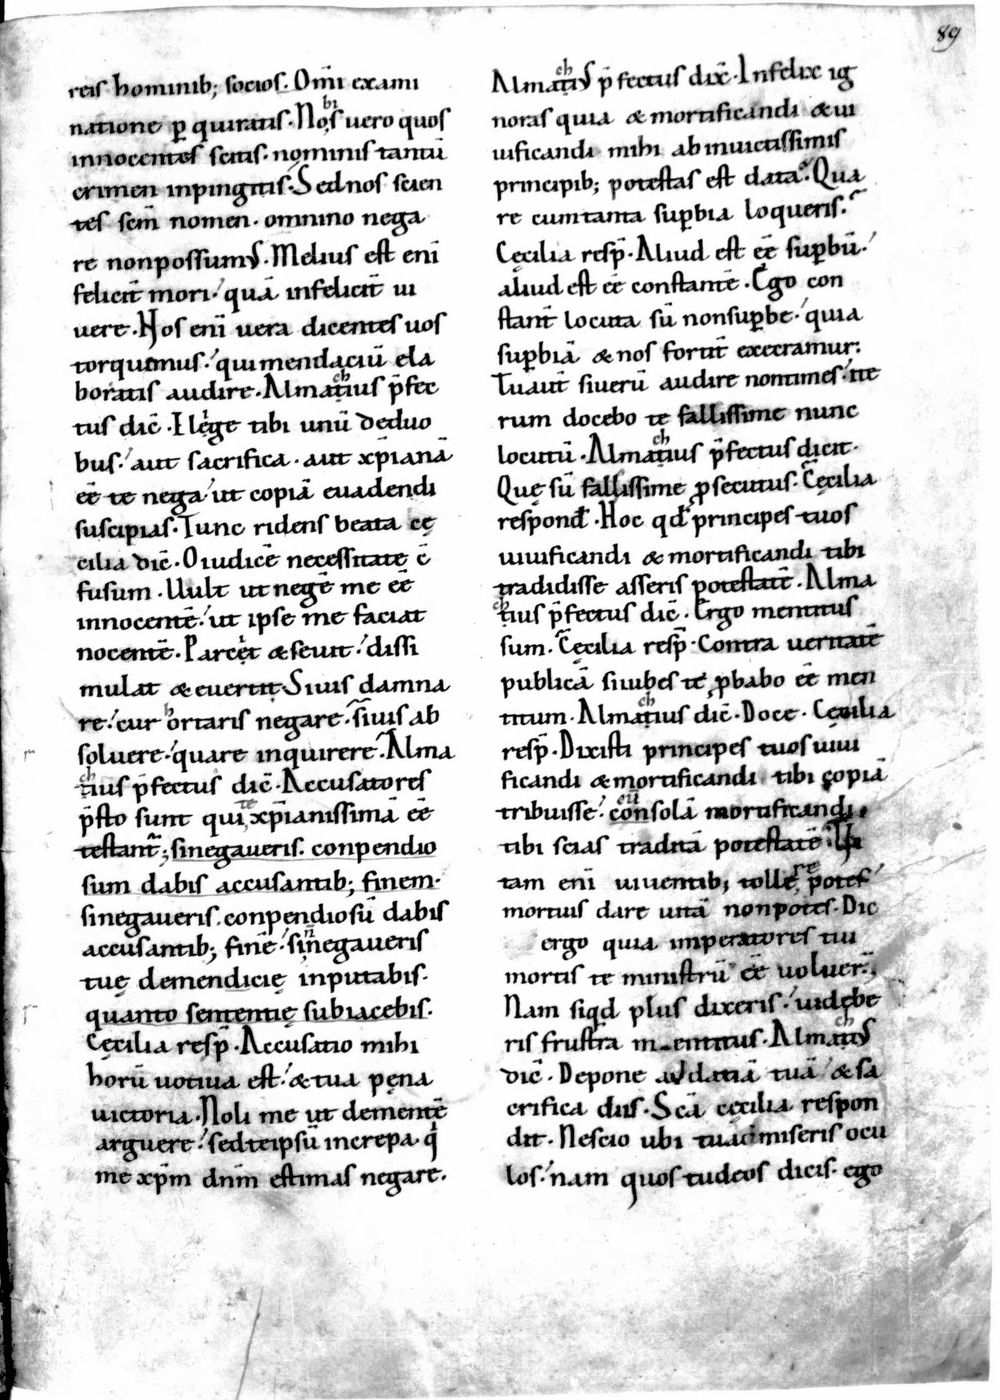 89
reis hominib; socios. Om̅i exami
natione ꝑ quiratis. Nos uero quos
innocentes scitis. nominis tantū
crimen inpingitis. Sed nos scien
tes sc̅m nomen. omnino nega
re non possumus. Melius est eni̅
felicit̅ mori. quā infelicit̅ ui
uere. Nos eni̅ uera dicentes uos
torquemus. qui mendaciū ela
boratis audire. Almatius p̅fec
tus dic̅. Elige tibi unū deduo
bus. aut sacrifica. aut xp̅ianā
ee̅ te nega ut copiā euadendi
suscipias. Tunc ridens beata cę
cilia dic̅. O iudice̅ necessitate c̅
fusum. Uult ut nege̅ me ee̅
innocente̅. ut ipse me faciat
nocente̅. Parcet & seuit. dissi
mulat & euertit. Si uis damna
re. cur hortaris negare. si uis ab
soluere. quare inquirere. Alma
tius p̅fectus dic̅. Accusatores
p̅sto sunt qui te xp̅ianissimā ee̅
testant̅; si negaueris. conpendio
sum dabis accusantib; finem.
si negaueris. conpendiosū dabis
accusantib; fine̅. si n̅ negaueris
tuę demendicię inputabis.
quanto sententię subiacebis.
Cęcilia resp̅. Accusatio mihi
horū uotiua est. & tua pęna
uictoria. Noli me ut demente̅
arguere. sed teipsū increpa. q̇
me xp̅m dnm̅ estimas negare.
Almatius p̅fectus dix̅. Infelix ig
noras quia & mortificandi & ui
uificandi mihi ab inuictissimis
principib; potestas est data. Qua
re cum tanta suꝑbia loqueris.
Cęcilia resp̅. Aliud est ee̅ suꝑbū.
aliud est ee̅ constante̅. Ego con
stant̅ locuta sū non suꝑbe. quia
suꝑbiā & nos fortit̅ execramur.
Tu aut̅ si uerū audire non times. ite
rum docebo te fallissime nunc
locutū. Almatius p̅fectus dicit.
Quę sū fallissime ꝓsecutus. Cęcilia
respond̅. Hoc qd̅ principes tuos
uiuificandi & mortificandi tibi
tradidisse asseris potestate̅. Alma
tius p̅fectus dic̅. Ergo mentitus
sum. Cęcilia resp̅. Contra ueritate̅
publicā si iubes te ꝓbabo ee̅ men
titum. Almatius dic̅. Doce. Cęcilia
resp̅. Dixisti principes tuos uiui
ficandi & mortificandi tibi copiā
tribuisse. cū consolā mortificandi
tibi scias traditā potestate̅. Ui
tam eni̅ uiuentib; tollere potes
mortuis dare uitā non potes. Dic
ergo quia imperatores tui
mortis te ministrū ee̅ uoluer̅.
Nam si qd plus dixeris. uidebe
ris frustra mentitus. Almatius
dic̅. Depone audatiā tuā & sa
crifica diis. Sc̅a cęcilia respon
dit. Nescio ubi tu amiseris ocu
los. nam quos tu deos dicis. ego